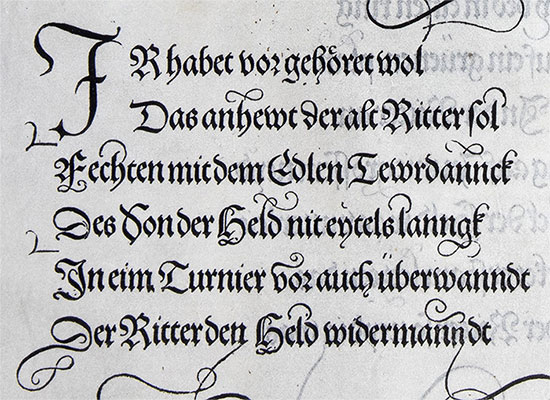 IR habet vor gehöret wol
Das anhewt der alt Ritter sol
Fechten mit dem Edlen Tewrdannck
Des Von der Held nit eytels lanngk
In eim Turnier vor auch überwanndt
Der Ritter den Held widermanndt